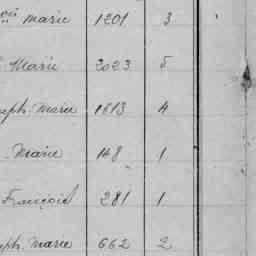 Marie 1201 3
Marie 2023 5
aph. Marie 1613 4
Marie 148 1
François 281 1
ph. Marie 662 2